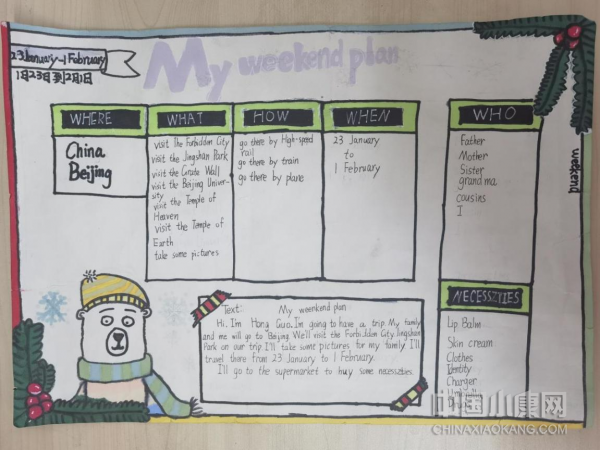 23 January ~ 1 February
1月23日到2月1日
My weekend plan
WHERE
China
Beijing
WHAT
visit The Forbidden City
visit the Jingshan Park
visit the Grate Wall
visit the Beijing Univer-
sity
visit the Temple of
Heaven
visit the Temple of
Earth
take some pictures
HOW
go there by High-speed
rail
go there by train
go there by plane
WHEN
23 January
to
1 February
WHO
Father
Mother
Sister
grandma
cousins
I
weekend
NECESSZYIES
Lip Balm
Skin cream
Clothes
Identity
Charger
Text:
My weenkend plan
Hi. I'm Hong Guo. I'm going to have a trip. My family
and me will go to Beijing We'll visit the Forbidden City, Jingshan
Park on our trip I'll take some pictures for my family I'll
travel there from 23 January to 1 February.
I'll go to the supermarket to buy some necesszties.
中国小康网
CHINAXIAOKANG.COM